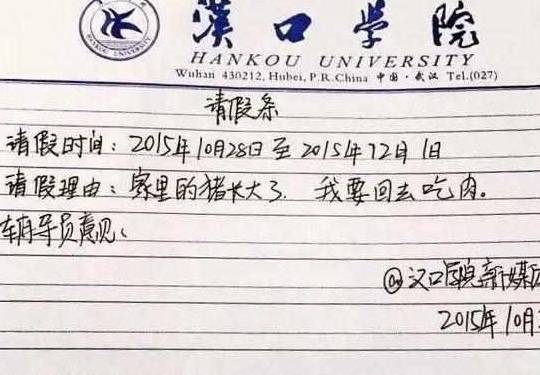 漢口学院
HANKOU UNIVERSITY
Wuhan 430212, Hubei, P.R.China 中国·武汉 Tel.(027)
请假条
请假时间：2015年10月28日至2015年12月1日
请假理由：家里的猪长大了，我要回去吃肉。
辅导员意见：
@汉口学院新媒
2015年10月